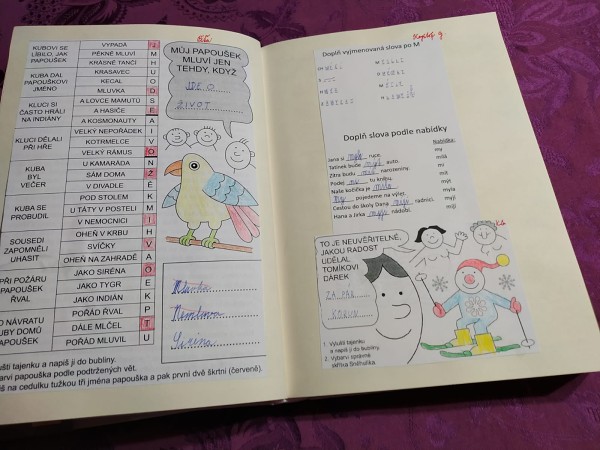 KUBOVI SE LÍBILO, JAK PAPOUŠEK
VYPADÁ
PĚKNĚ MLUVÍ
KRÁSNĚ TANČÍ
KUBA DAL PAPOUŠKOVI JMÉNO
KRASAVEC
KECAL
MLUVKA
KLUCI SI ČASTO HRÁLI NA INDIÁNY
A LOVCE MAMUTŮ
A HASIČE
A ZVÍŘATA
KLUCI DĚLALI PŘI HŘE
VELKÝ NEPOŘÁDEK
KOTRMELCE
VELKÝ RÁMUS
KUBA BYL VEČER
U KAMARÁDA
SÁM DOMA
V DIVADLE
KUBA SE PROBUDIL
POD STOLEM
U TÁTY V POSTELI
V NEMOCNICI
SOUSEDI ZAPOMNĚLI UHASIT
OHEŇ V KRBU
SVÍČKY
OHEŇ NA ZAHRADĚ
PŘI POŽÁRU PAPOUŠEK ŘVAL
JAKO SIRÉNA
JAKO TYGR
JAKO INDIÁN
NÁVRATU KUBY DOMŮ
POŘÁD ŘVAL
DÁLE MLČEL
POŘÁD MLUVIL
MŮJ PAPOUŠEK
MLUVÍ JEN
TEHDY, KDYŽ
JDE O
ŽIVOT
Mluvka
Siréna
a napiš ji do bubliny.
papouška podle podtržených vět.
na cedulku tužkou tři jména papouška a pak první dvě škrtni (červeně).
Doplň vyjmenovaná slova po M
Doplň slova podle nabídky
Nabídka:
Jana si myla ruce.
my
Tatínek bude mýt auto.
milá
Zítra budu mít narozeniny.
mi
Podej mi tu knihu.
mít
Naše kočička je milá.
mýt
My pojedeme na výlet.
myla
Cestou do školy Dana míjí radnici.
myjí
Hana a Jirka myjí nádobí.
míjí
TO JE NEUVĚŘITELNÉ,
JAKOU RADOST
UDĚLAL
TOMÍKOVI
DÁREK
ZA PÁR
KORUN
1. Vylušti tajenku
a napiš ji do bubliny.
2. Vybarvi správně
skřítka Sněhulka.